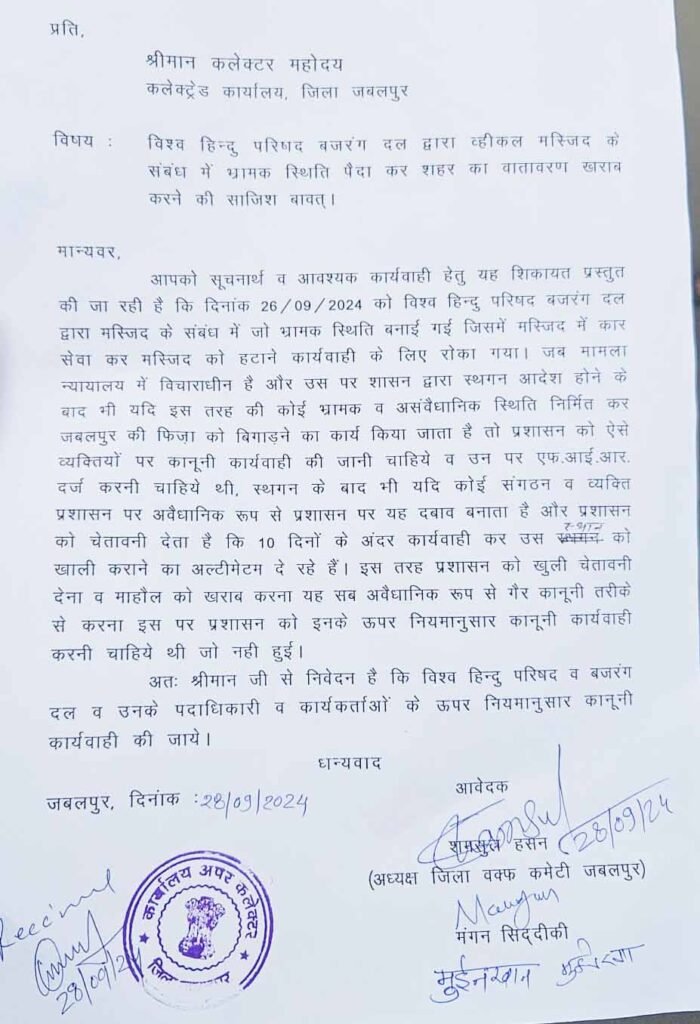 प्रति,
श्रीमान कलेक्टर महोदय
कलेक्ट्रेड कार्यालय, जिला जबलपुर
विषय : विश्व हिन्दु परिषद बजरंग दल द्वारा व्हीकल मस्जिद के
संबंध में भ्रामक स्थिति पैदा कर शहर का वातावरण खराब
करने की साजिश बावत्।
मान्यवर,
आपको सूचनार्थ व आवश्यक कार्यवाही हेतु यह शिकायत प्रस्तुत
की जा रही है कि दिनांक 26/09/2024 को विश्व हिन्दु परिषद बजरंग दल
द्वारा मस्जिद के संबंध में जो भ्रामक स्थिति बनाई गई जिसमें मस्जिद में कार
सेवा कर मस्जिद को हटाने कार्यवाही के लिए रोका गया। जब मामला
न्यायालय में विचाराधीन है और उस पर शासन द्वारा स्थगन आदेश होने के
बाद भी यदि इस तरह की कोई भ्रामक व असंवैधानिक स्थिति निर्मित कर
जबलपुर की फिज़ा को बिगाड़ने का कार्य किया जाता है तो प्रशासन को ऐसे
व्यक्तियों पर कानूनी कार्यवाही की जानी चाहिये व उन पर एफ.आई.आर.
दर्ज करनी चाहिये थी, स्थगन के बाद भी यदि कोई संगठन व व्यक्ति
प्रशासन पर अवैधानिक रूप से प्रशासन पर यह दबाव बनाता है और प्रशासन
स्थान
को चेतावनी देता है कि 10 दिनों के अंदर कार्यवाही कर उस स्थगन को
खाली कराने का अल्टीमेटम दे रहे हैं। इस तरह प्रशासन को खुली चेतावनी
देना व माहौल को खराब करना यह सब अवैधानिक रूप से गैर कानूनी तरीके
से करना इस पर प्रशासन को इनके ऊपर नियमानुसार कानूनी कार्यवाही
करनी चाहिये थी जो नही हुई।
अतः श्रीमान जी से निवेदन है कि विश्व हिन्दु परिषद व बजरंग
दल व उनके पदाधिकारी व कार्यकर्ताओं के ऊपर नियमानुसार कानूनी
कार्यवाही की जाये।
धन्यवाद
जबलपुर, दिनांक : 28/09/2024
आवेदक
शमसुल हसन 28/09/24
(अध्यक्ष जिला वक्फ कमेटी जबलपुर)
मंगन सिद्दीकी
मुईन खान
कार्यालय अपर कलेक्टर
जिला
28/09/24